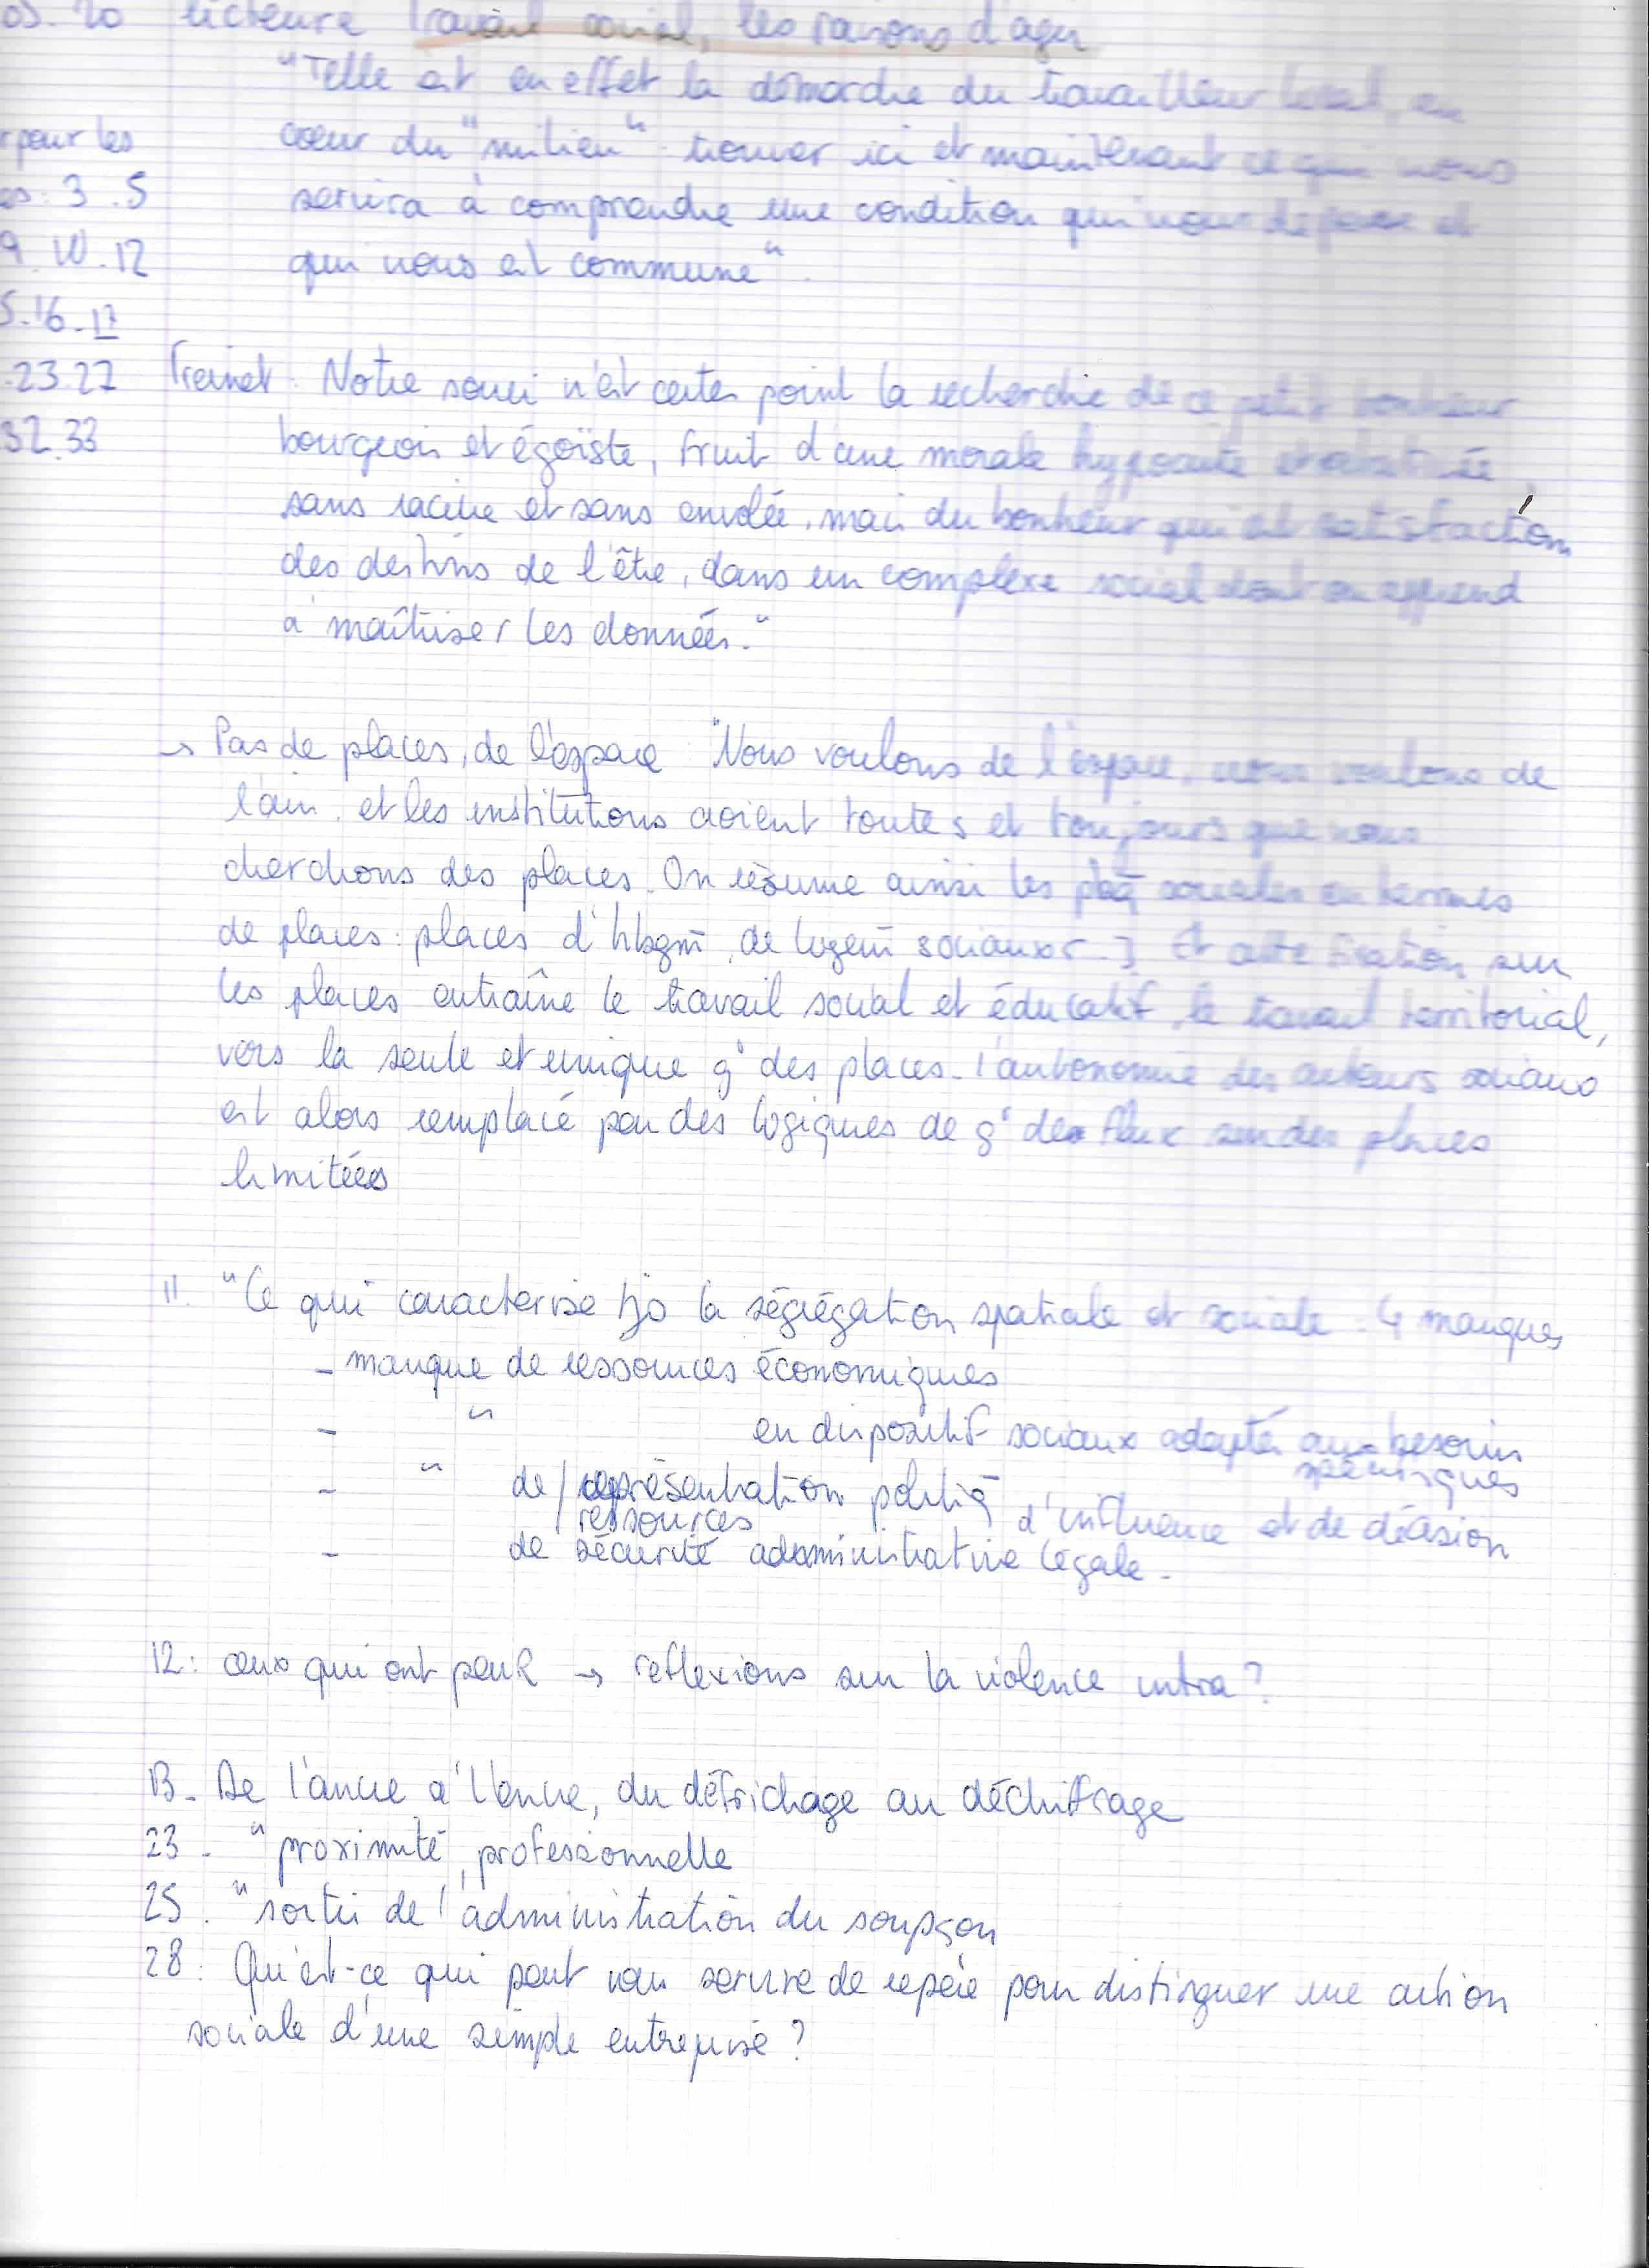 05. 20 lecteure Travail social, les raisons d'agir
"Telle est en effet la démarche du travailleur social, au
r pour les
coeur du "milieu" trouver ici et maintenant ce qui nous
es: 3.5
servira à comprendre une condition qui nous dépasse et
9. 10. 12
qui nous est commune".
5.16.17
.23.27
Freinet : Notre souci n'est certes point la recherche de ce petit bonheur
32.33
bourgeois et égoïste, fruit d'une morale hypocrite
sans racine et sans envolée, mais du bonheur qui est satisfaction
des destins de l'être, dans un complexe social dont on apprend
à maîtriser les données."
→ Pas de places, de l'espace "Nous voulons de l'espace, nous voulons de
l'air, et les institutions croient toutes et toujours que nous
cherchons des places. On résume ainsi les pbq sociales en termes
de places : places d'hbgmt, de logemt sociaux [..] Et cette fixation sur
les places entraîne le travail social et éducatif, le travail territorial,
vers la seule et unique g° des places. l'autonomie des acteurs sociaux
est alors remplacé par des logiques de g° des flux sur des places
limitées
11. "Ce qui caracterise tjs la ségrégation spatiale et sociale : 4 manques
- manque de ressources économiques
- " en dispositif sociaux adaptés aux besoins
spécifiques
- " de / représentation politiq d'influence et de décision
ressources
- de sécurité administrative légale.
12 : ceux qui ont peuR → réflexions sur la violence intra ?
13. De l'ancre a l'encre, du défrichage au déchiffrage
23. "proximité professionnelle
25. "sortir de l'administration du soupçon
28. Qu'est-ce qui peut nous servire de repère pour distinguer une action
sociale d'une simple entreprise ?